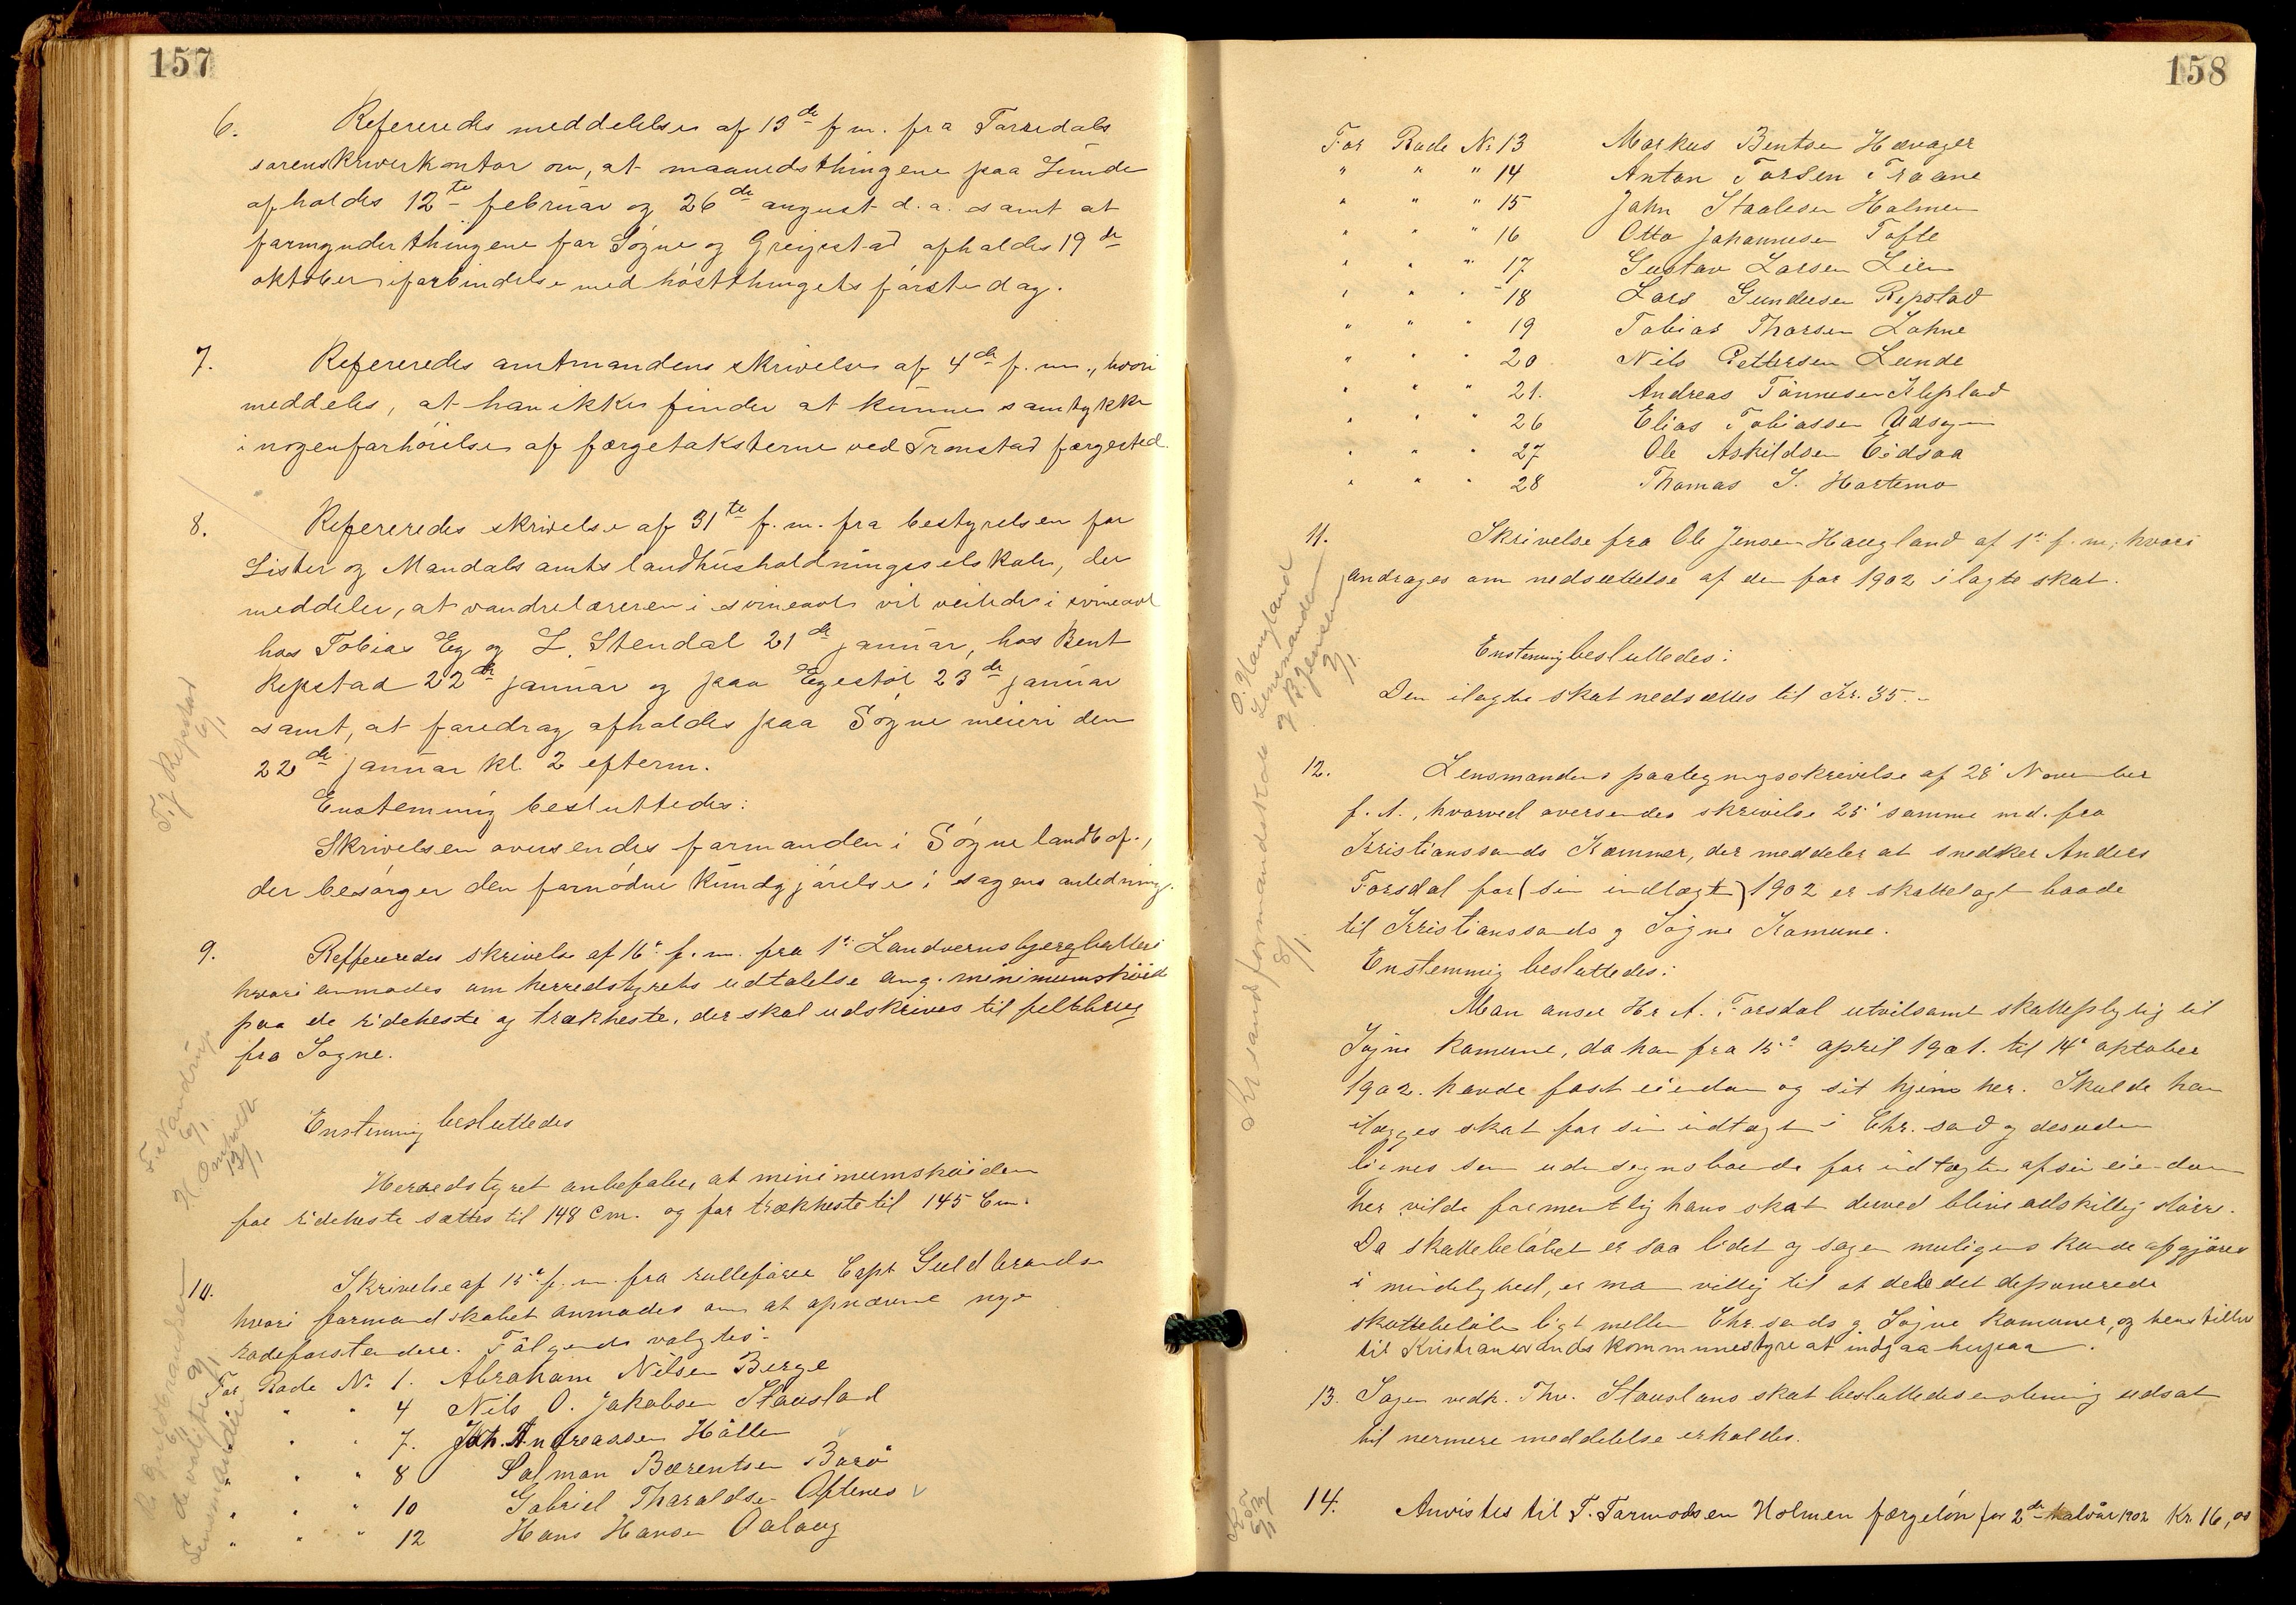 157
6. Refereredes meddelelse af 13de f. m. fra Torridals
sorenskriverkontor om, at maanedsthingene paa Lunde
afholdes 12te februar og 26de august d. a. samt at
formynderthingene for Søgne og Greipstad afholdes 19de
oktober i forbindelse med høstthingets første dag.
7. Refereredes amtmandens skrivelse af 4de f. m., hvori
meddeles, at han ikke finder at kunne samtykke
i nogen forhøielse af færgetaksterne ved Tronstad færgested.
8. Refereredes skrivelse af 31te f. m. fra bestyrelsen for
Lister og Mandals amts landhusholdningsselskab, der
meddeler, at vandrelæreren i svineavl vil veilede i svineavl
hos Tobias Eg og L. Stendal 21de januar, hos Bent
Repstad 22de januar og paa Egestøl 23de januar
samt, at foredrag afholdes paa Søgne meieri den
22de januar kl. 2 efterm.
Enstemmig besluttedes:
Skrivelsen oversendes formanden i Søgne landbof.,
der besørger den fornødne kundgjørelse i sagens anledning.
T. J. Repstad
6/1
9. Reffereredes skrivelse af 16de f. m. fra 1ste Landverns bjergbatteri
hvori anmodes om herredstyrets udtalelse ang. minimumshøide
paa de rideheste og trækheste, der skal udskrives til feltbrug
fra Sogne.
Enstemmig besluttedes
Herredstyret anbefaler, at minimumshøiden
for rideheste sættes til 148 cm. og for trækheste til 145 Cm.
6/1.
13/1
10. Skrivelse af 15de f. m. fra rullefører Capt Guldbrandsen
hvori formandskabet anmodes om at opnævne nye
rodeforstandere. Følgende valgtes:
For Rode No 1. Abraham Nilsen Berge
" " " 4 Nils O. Jakobsen Stausland
" " " 7. Joh. Andreassen Hålle
" " " 8 Salman Bærentsen Borø
" " " 10 Gabriel Tharaldsen Aftenes
" " " 12 Hans Hansen Aalaug
R. Guldbrandsen
De valgte 9/1
Lensmanden
158
For Rode No 13 Markus Bentsen Hævager
" " " 14 Anton Torsen Traane
" " " 15 John Staalesen Holmen
" " " 16 Otto Johannesen Tofte
" " " 17 Gustav Larsen Lien
" " " 18 Lars Gundersen Repstad
" " " 19 Tobias Thorsen Lohne
" " " 20 Nils Pettersen Lunde
" " " 21. Andreas Tønnesen Klepland
" " " 26 Elias Tobiassen Udsogn
" " " 27 Ole Askildsen Eidsaa
" " " 28 Thomas S. Hortemo
11. Skrivelse fra Ole Jensen Haugland af 1ste f. m., hvori
andrages om nedsættelse af den for 1902 ilagte skat.
Enstemmig besluttedes:
Den ilagte skat nedsættes til Kr. 35.-
O. Haugland
Lensmanden
og B. Jensen
9/1.
12. Lensmandens paategningsskrivelse af 28de November
f. A., hvorved oversendes skrivelse 25de samme md. fra
Kristianssands Kæmner, der meddeler at snedker Anders
Forsdal for (sin indtægt) 1902 er skattelagt baade
til Kristianssands og Søgne Komune.
Enstemmig besluttedes:
Man anser Hr A. Forsdal utvilsomt skattepligtig til
Søgne komune, da han fra 15de april 1901. til 14de oktober
1902. havde fast eiendom og sit hjem her. Skulde han
ilægges skat for sin indtægt i Chr. sand og desuden
lignes som udensognsboende for indtægten af sin eiendom
her vilde formentlig hans skat derved blive adskillig større.
Da skattebeløbet er saa lidet og sagen muligens kunde afgjøres
i mindelighed, er man villig til at dele det deponerede
skattebeløb ligt mellem Chr. sands og Søgne Komuner, og henstiller
til Kristianssands kommunestyre at indgaa herpaa.
Kr.sand formandskab
8/1.
13. Sagen vedk. Thv. Stauslans skat besluttedes enstemmig udsat
til nermere meddelelse erholdes.
14. Anvistes til T. Tarmodsen Holmen færgeløn for 2det halvår 1902 Kr. 16,00